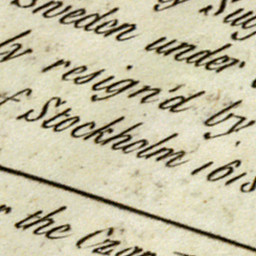 Sweden under
resign'd by
Stockholm 1618
the Czar